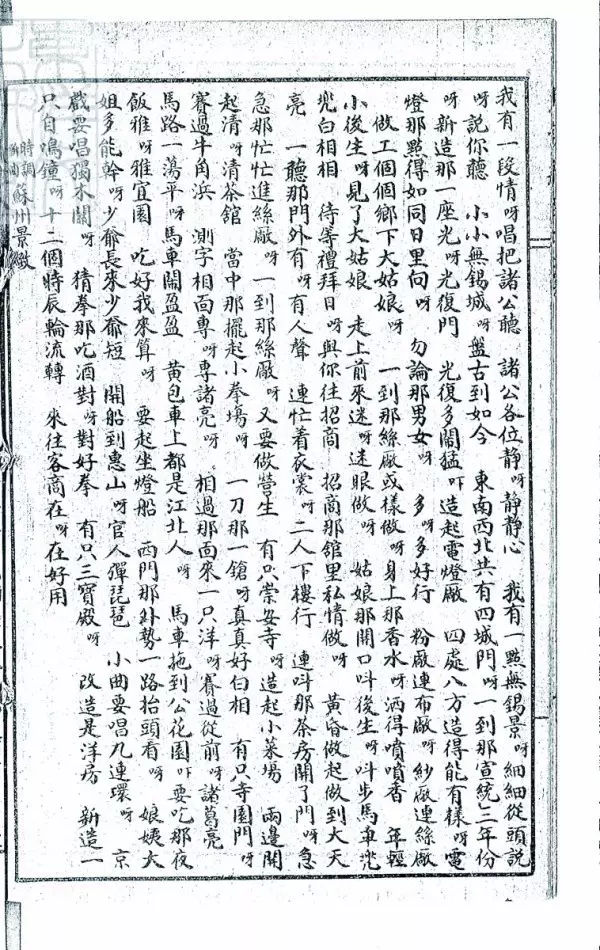 我有一段情呀唱把諸公聽　諸公各位靜呀靜靜心　我有一點無錫景呀細細從頭說
呀說你聽　小小無錫城呀盤古到如今　東南西北共有四城門呀一到那宣統三年份
呀新造那一座光呀光復門　光復多鬧猛吓造起電燈廠　四處八方造得能有樣呀電
燈那點得如同日里向呀　勿論那男女呀　多呀多好行　粉廠連布廠呀紗廠連絲廠
做工個個鄉下大姑娘呀　一到那絲廠或樣做呀身上那香水呀洒得噴噴香　年輕
小後生呀見了大姑娘　走上前來迷呀迷眼做呀　姑娘那開口呌後生呀呌步馬車兜
兜白相相　待等禮拜日呀與你往招商　招商那舘里私情做呀　黃昏做起做到大天
亮　一聽那門外有呀有人聲　連忙着衣裳呀二人下樓行　連呌那茶房開了門呀急
急那忙忙進絲廠呀一到那絲廠呀又要做營生　有只崇安寺呀造起小菜場　兩邊開
起清呀清茶舘　當中那擺起小拳場呀　一刀那一鎗呀真真好白相　有只寺園門呀
賽過牛角浜　測字相面專呀專諸亮呀　相過那面來一只洋呀賽過從前呀諸葛亮
馬路一蕩平呀馬車鬧盈盈　黃包車上都是江北人呀　馬車拖到公花園吓要吃那夜
飯雅呀雅宜園　吃好我來算呀　要起坐燈船　西門那外勢一路抬頭看呀　娘姨大
姐多能幹呀少爺長來少爺短　開船到惠山呀官人彈琵琶　小曲要唱九連環呀　京
戲要唱獨木關呀　猜拳那吃酒對呀對好拳　有只三寶殿呀　改造是洋房　新造一
只自鳴鐘呀十二個時辰輪流轉　來往客商在呀在好用
時調
蘇州景緻